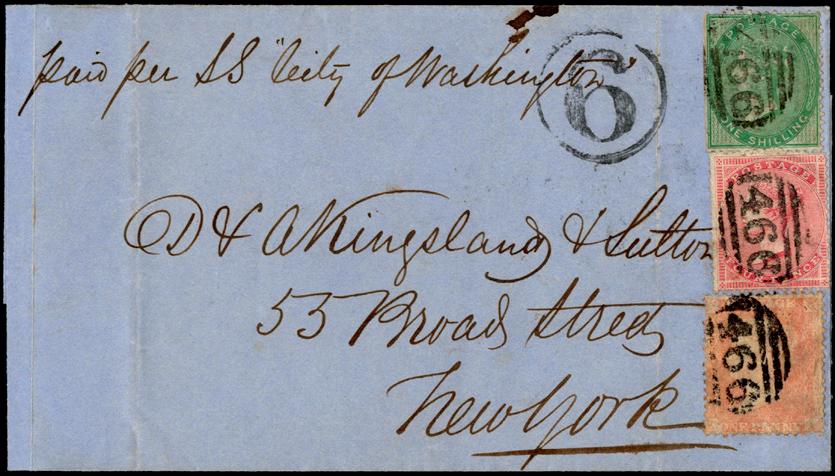 paid per SS "City of Washington"
6
D & A Kingsland & Sutton
55 Broad Street
New York
POSTAGE
466
ONE SHILLING
POSTAGE
466
FOUR PENCE
466
ONE PENNY